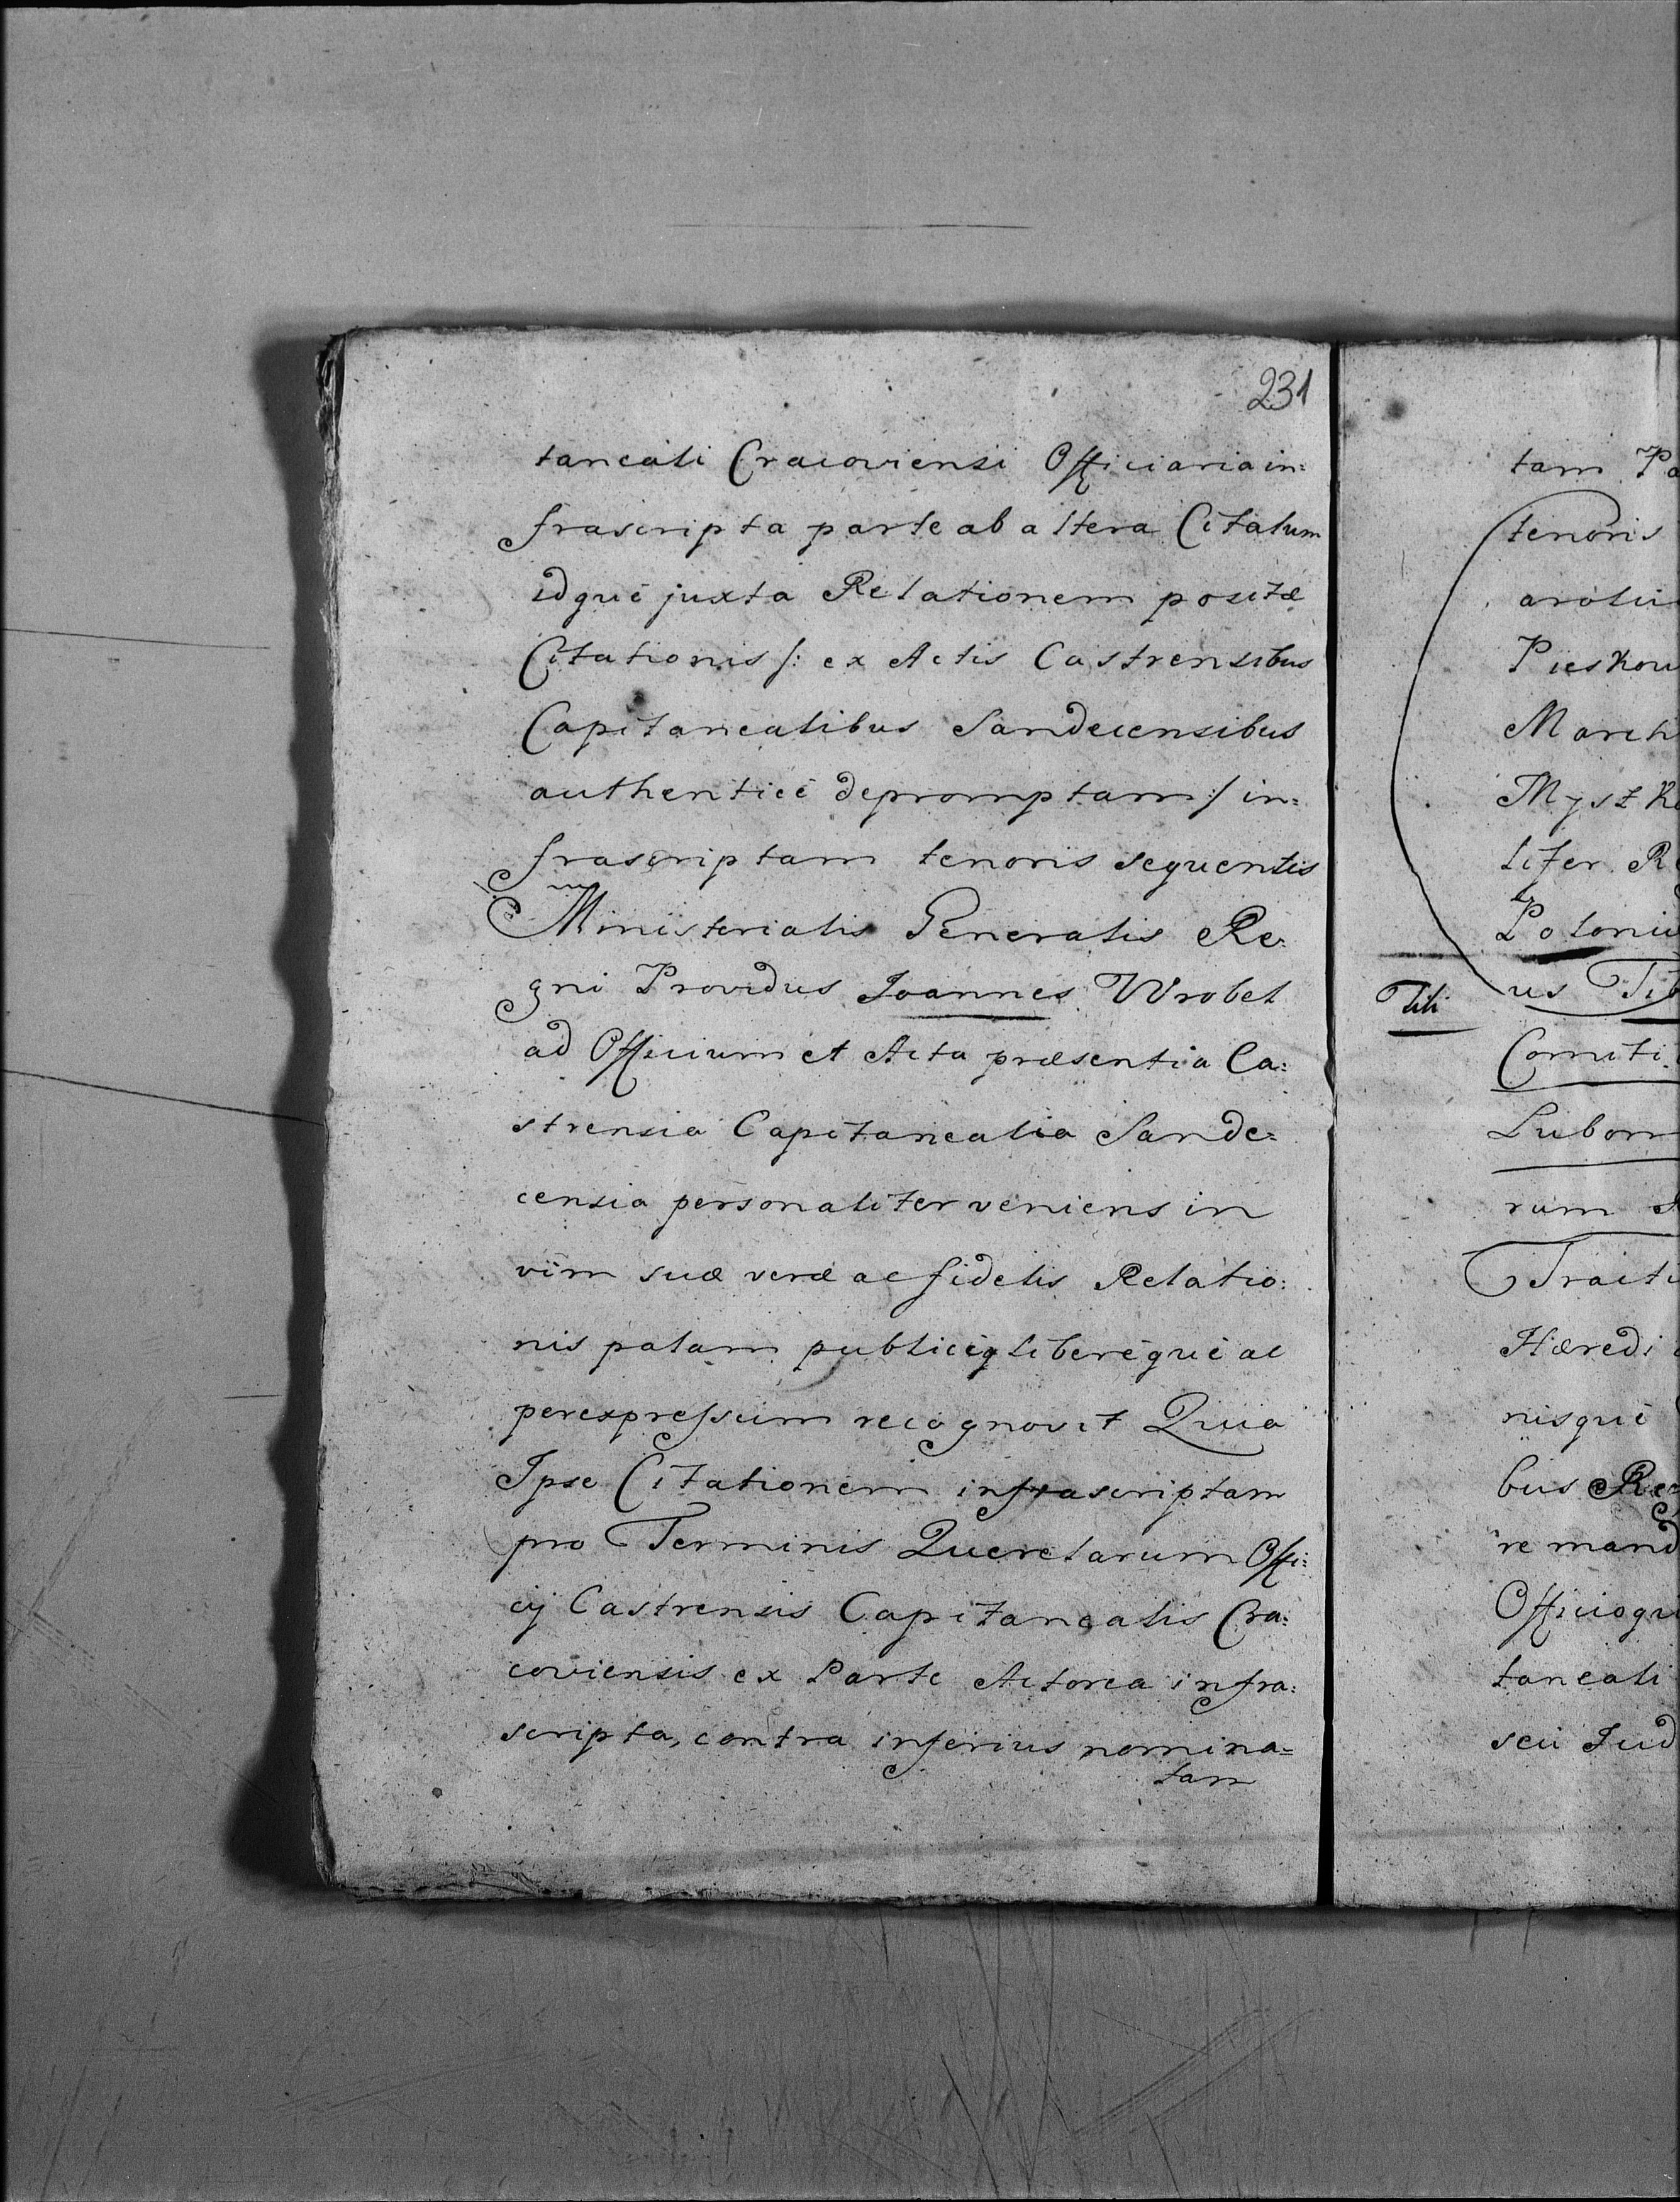 231
taneali Cracoviensi Officiaria in=
frascripta parte ab altera Citatum
idque juxta Relationem positæ
Citationis /: ex Actis Castrensibus
Capitanealibus Sandecensibus
authentice depromptam :/ in=
frascriptam tenoris sequentis
Ministerialis Generalis Re=
gni Providus Joannes Wrobel
ad Officium et Acta præsentia Ca=
strensia Capitanealia Sande=
censia personaliter veniens in
vim suæ veræ ac fidelis Relatio=
nis palam publiceq libereque ac
perexpressum recognovit Quia
Ipse Citationem infrascriptam
pro Terminis Querelarum Offi=
cij Castrensis Capitanealis Cra=
coviensis ex Parte Actorea infra=
scripta, contra inferius nomina=
tam
tam Pa
tenoris
Pieskow
March
Myszk
lifer Re
Poloni
Tili
us
Comiti
Lubom
rum
Tracti
Hæredi
nisque
bus Reg
re mand
Officioqu
taneali
seu Jud